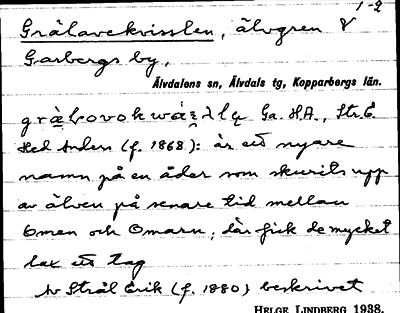 1-2
Grålavekvisslen, älvgren V
Garbergs by,
Älvdalens sn, Älvdals tg, Kopparbergs län.
Ga. H.A., Str. E.
Hed Anders (f. 1868): är ett nyare
namn på en åder som skurits upp
av älven på senare tid mellan
och ; där fick de mycket
lax ett tag
Av Strål Erik (f. 1880) beskrivet
HELGE LINDBERG 1938.